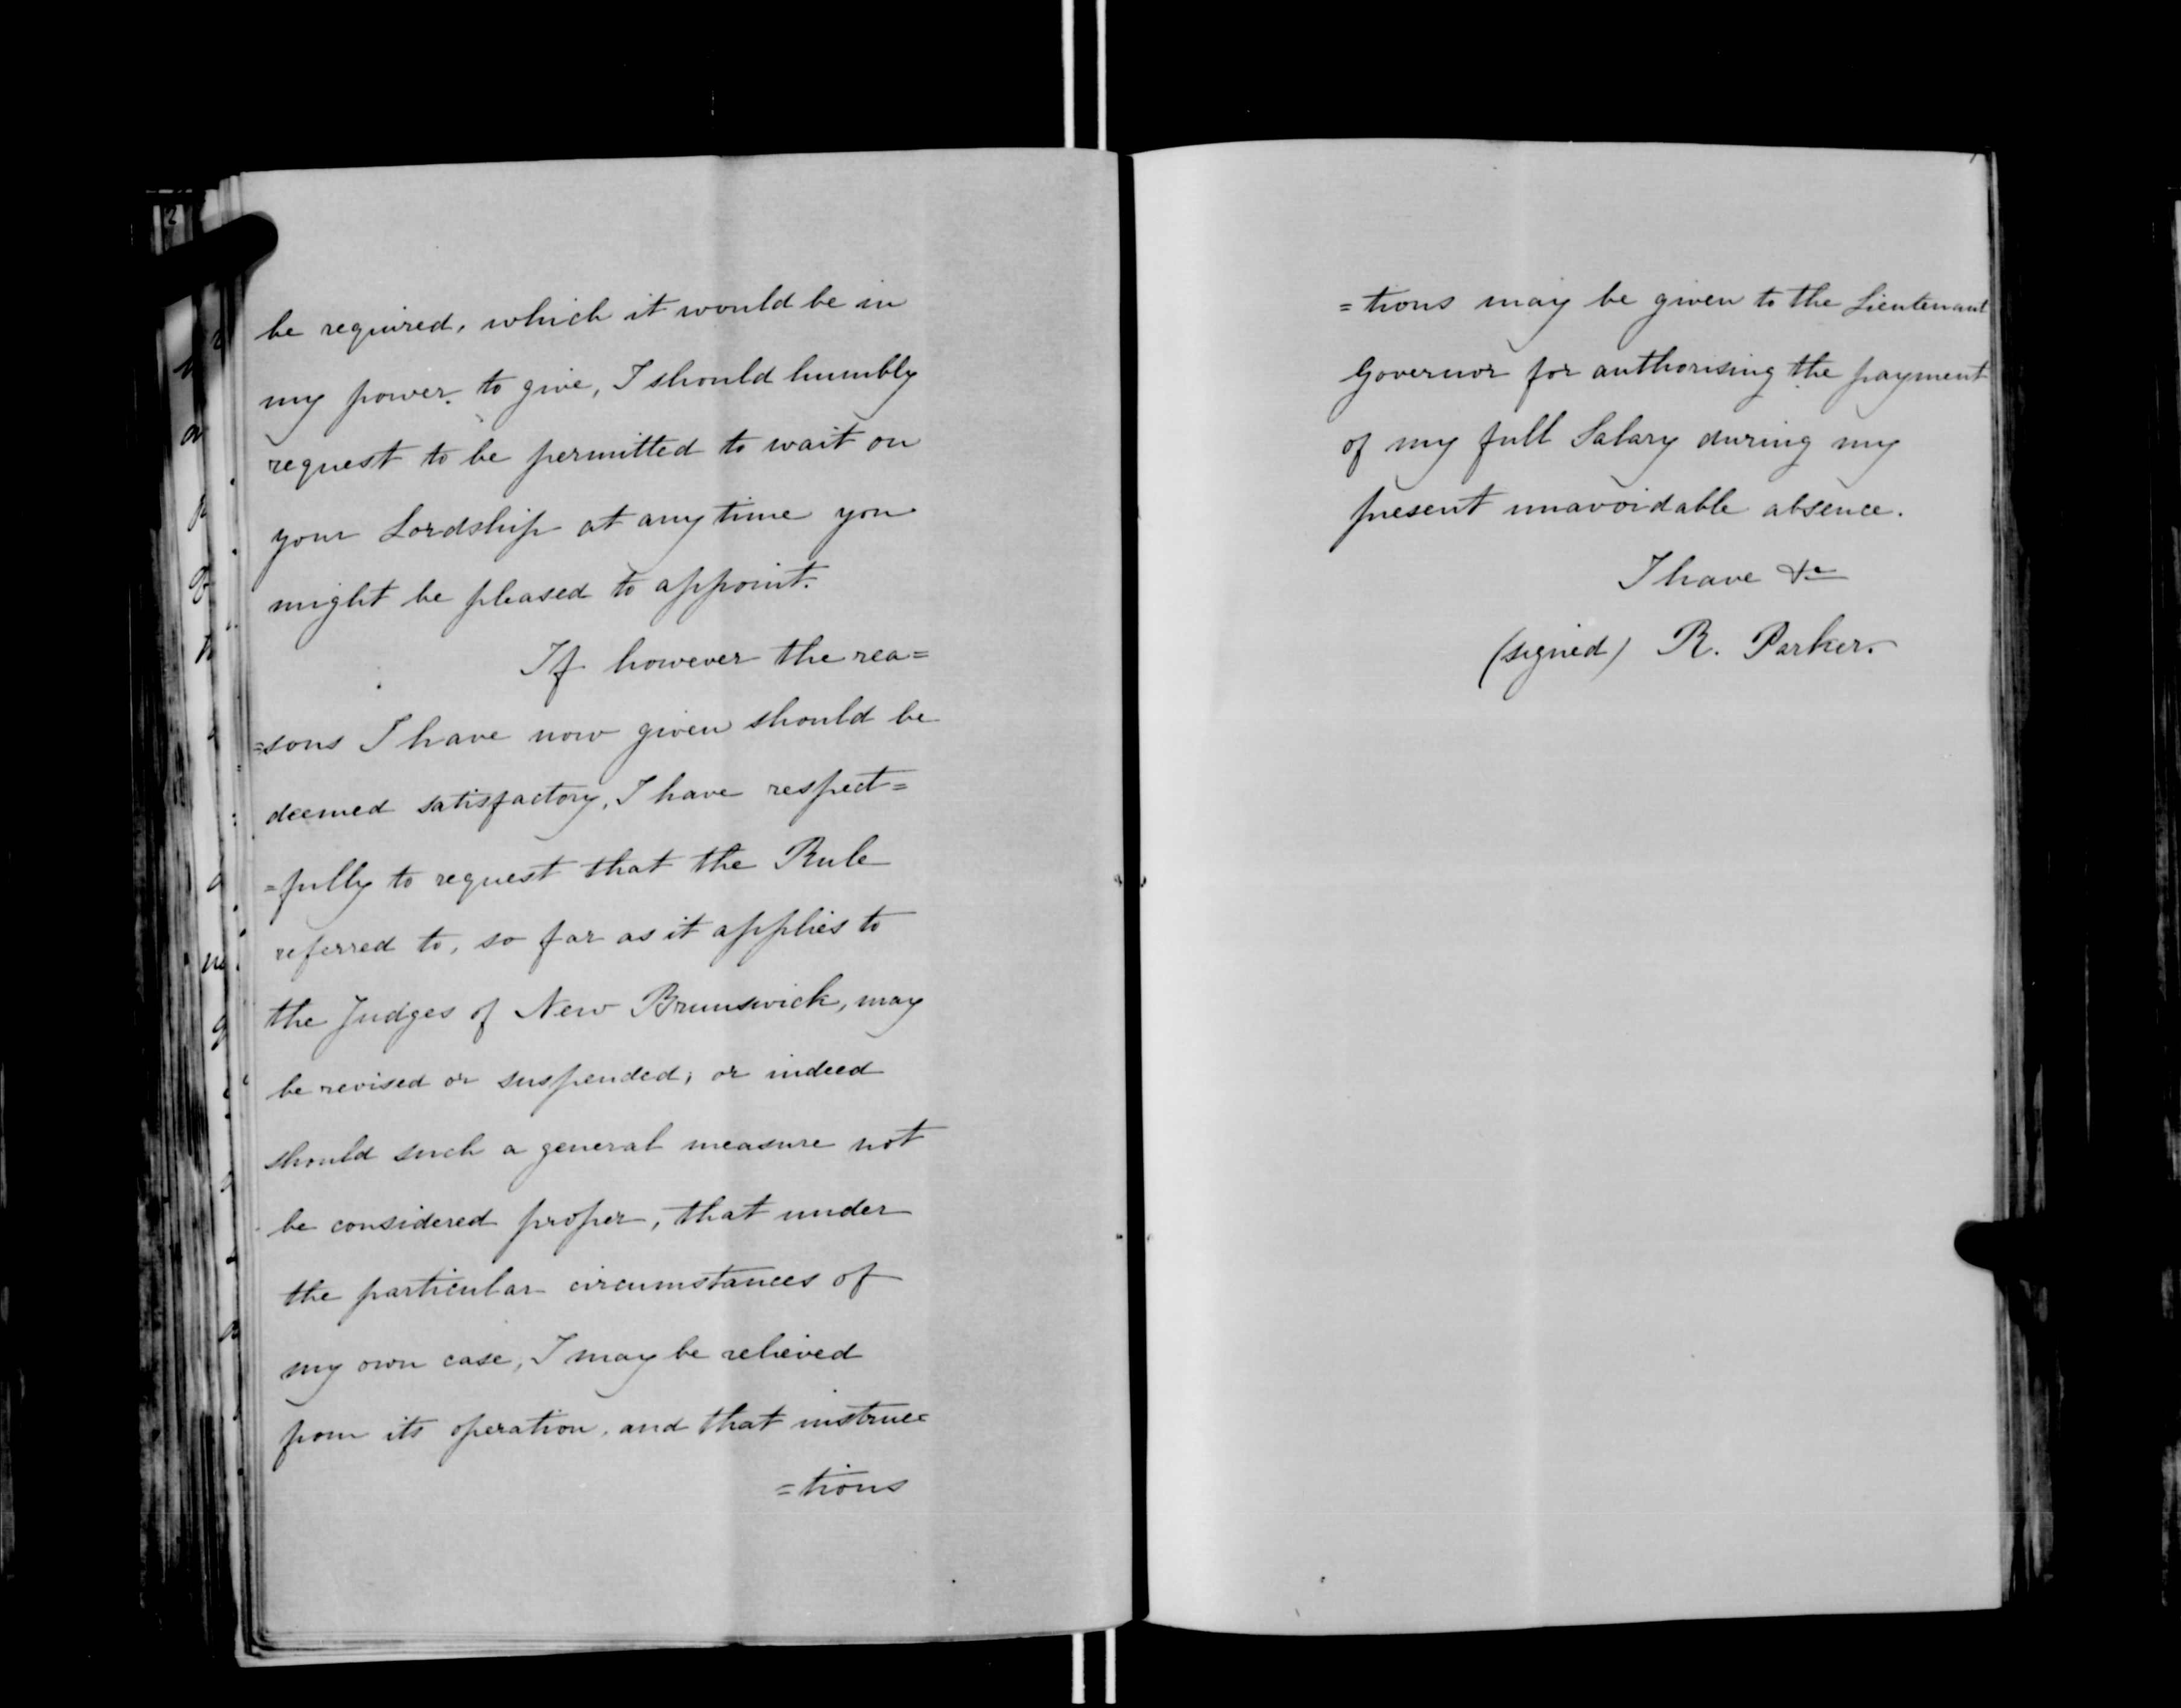 be required, which it would be in
my power to give, I should humbly
request to be permitted to wait on
your Lordship at any time you
might be pleased to appoint.
If however the rea=
=sons I have now given should be
deemed satisfactory, I have respect=
=fully to request that the Rule
referred to, so far as it applies to
the Judges of New Brunswick, may
be revised or suspended; or indeed
should such a general measure not
be considered proper, that under
the particular circumstances of
my own case, I may be relieved
from its operation, and that instruc=
=tions
=tions may be given to the Lieutenant
Governor for authorising the payment
of my full Salary during my
present unavoidable absence.
I have &c
(signed) R. Parker.